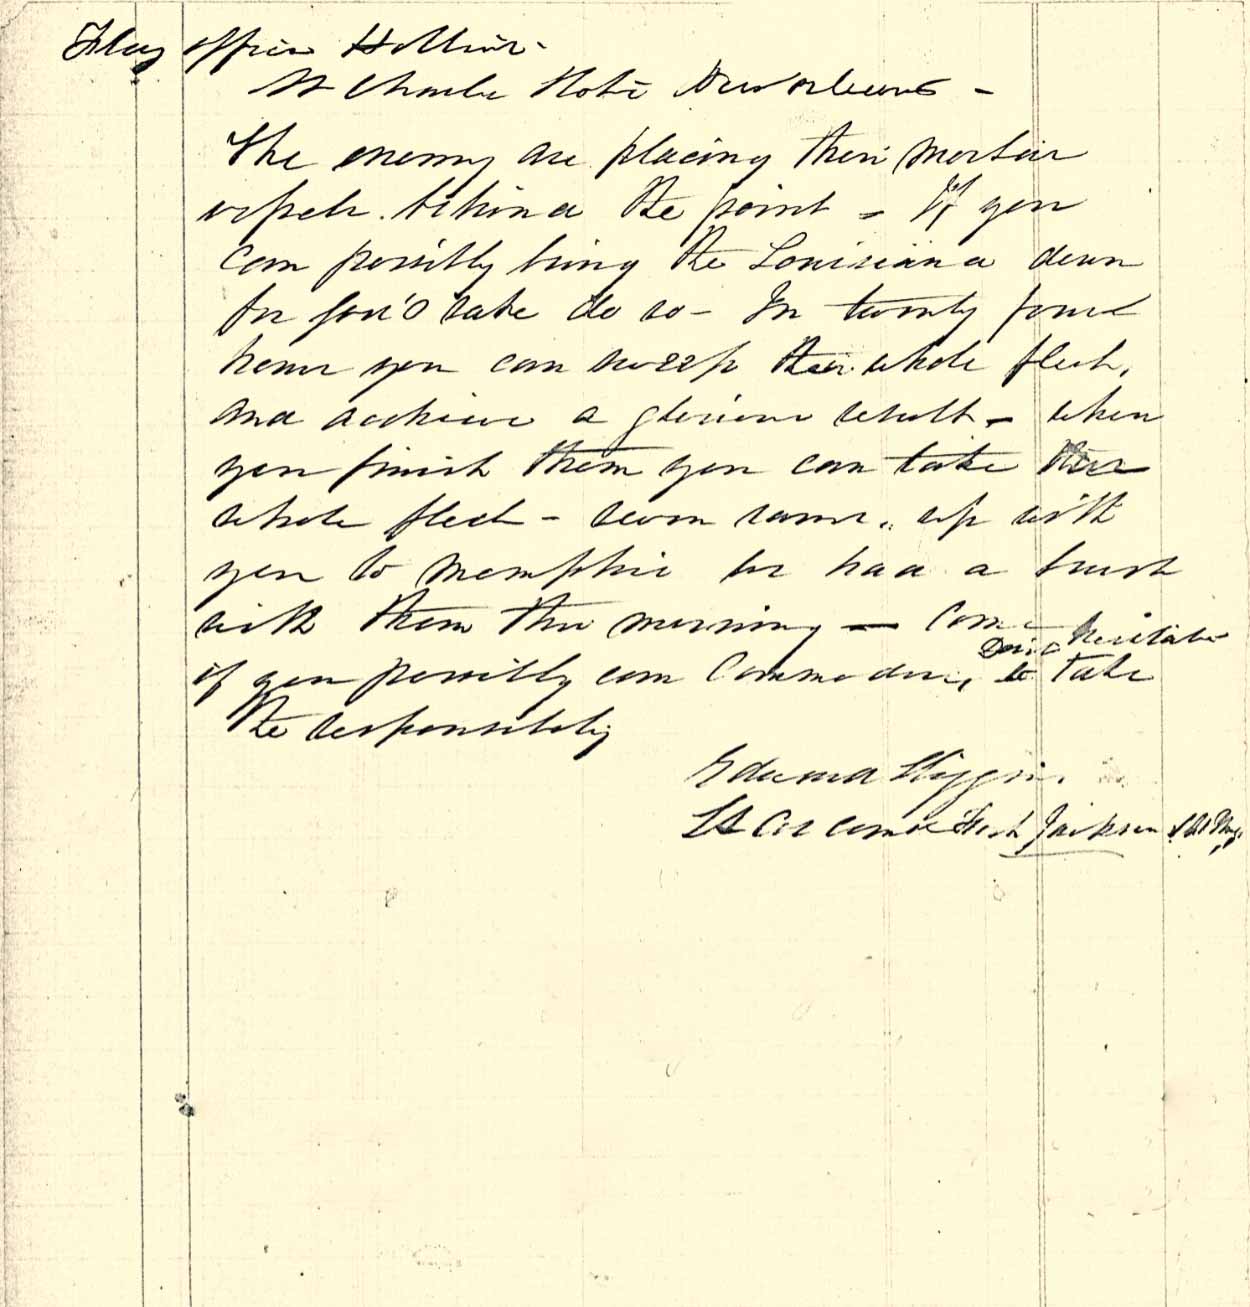 Flag officer Hollins -
St Charles Hotel New Orleans -
The enemy are placing their mortar
vessels behind the point - If you
can possibly bring the Louisiana down
for God's sake do so - In twenty four
hours you can sweep their whole fleet,
and achieve a glorious result - when
you finish them you can take their
whole fleet - seven rams, up with
you to Memphis We had a brush
with them this morning - Come
if you possibly can Commodore, Don't hesitate to take
the responsibility
Edward Higgins
Lt Col comdr Fort Jackson & St Phlp